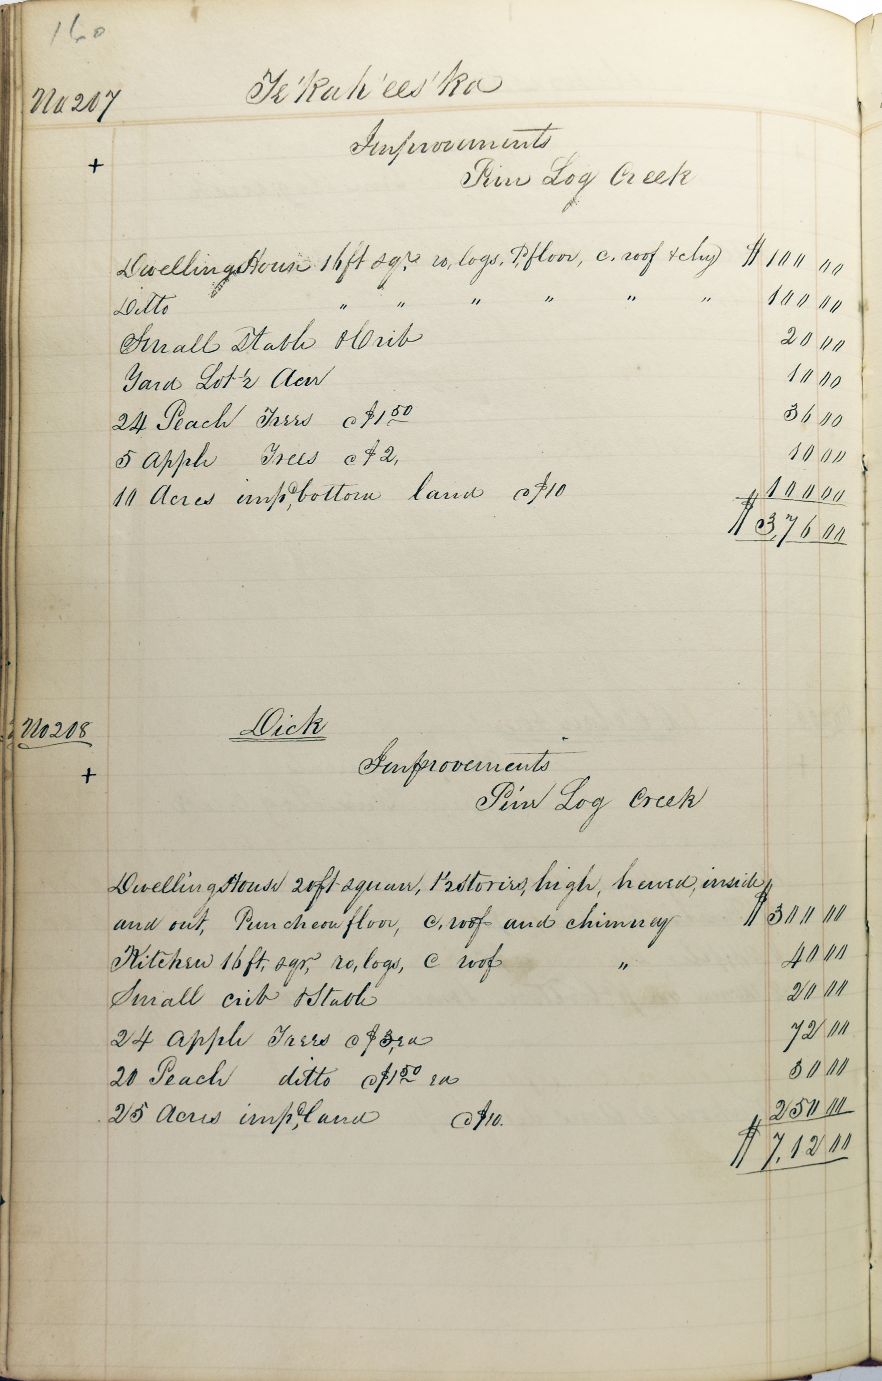 160
No 207 Te'kah'ees'ka
+
Improvements
Pine Log Creek
Dwelling House 16 ft sqr. ro, logs, P, floor, c. roof & chy $100 00
Ditto " " " " " " 100 00
Small Stable & Crib 20 00
Yard Lot ½ Acre 10 00
24 Peach Trees @ $1 50 36 00
5 Apple Trees @ $2, 10 00
10 Acres impd, bottom land @ $10 100 00
$ 3,76 00
No 208 Dick
+
Improvements
Pine Log Creek
Dwelling House 20 ft square, 1½ stories, high, hewed, inside
and out, Puncheon floor, C. roof and chimney $300 00
Kitchen 16 ft, sqr, ro, logs, C roof " 40 00
Small crib & Stable 20 00
24 Apple Trees @ $3, ea 72 00
20 Peach ditto @ $1 50 ea 30 00
25 Acres impd, land @ $10. 250 00
$ 7,12 00